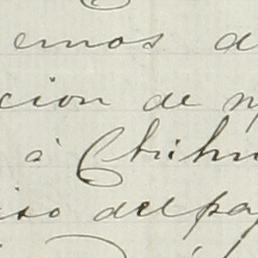 emos d
cion de n
à Chihu
iso del pa